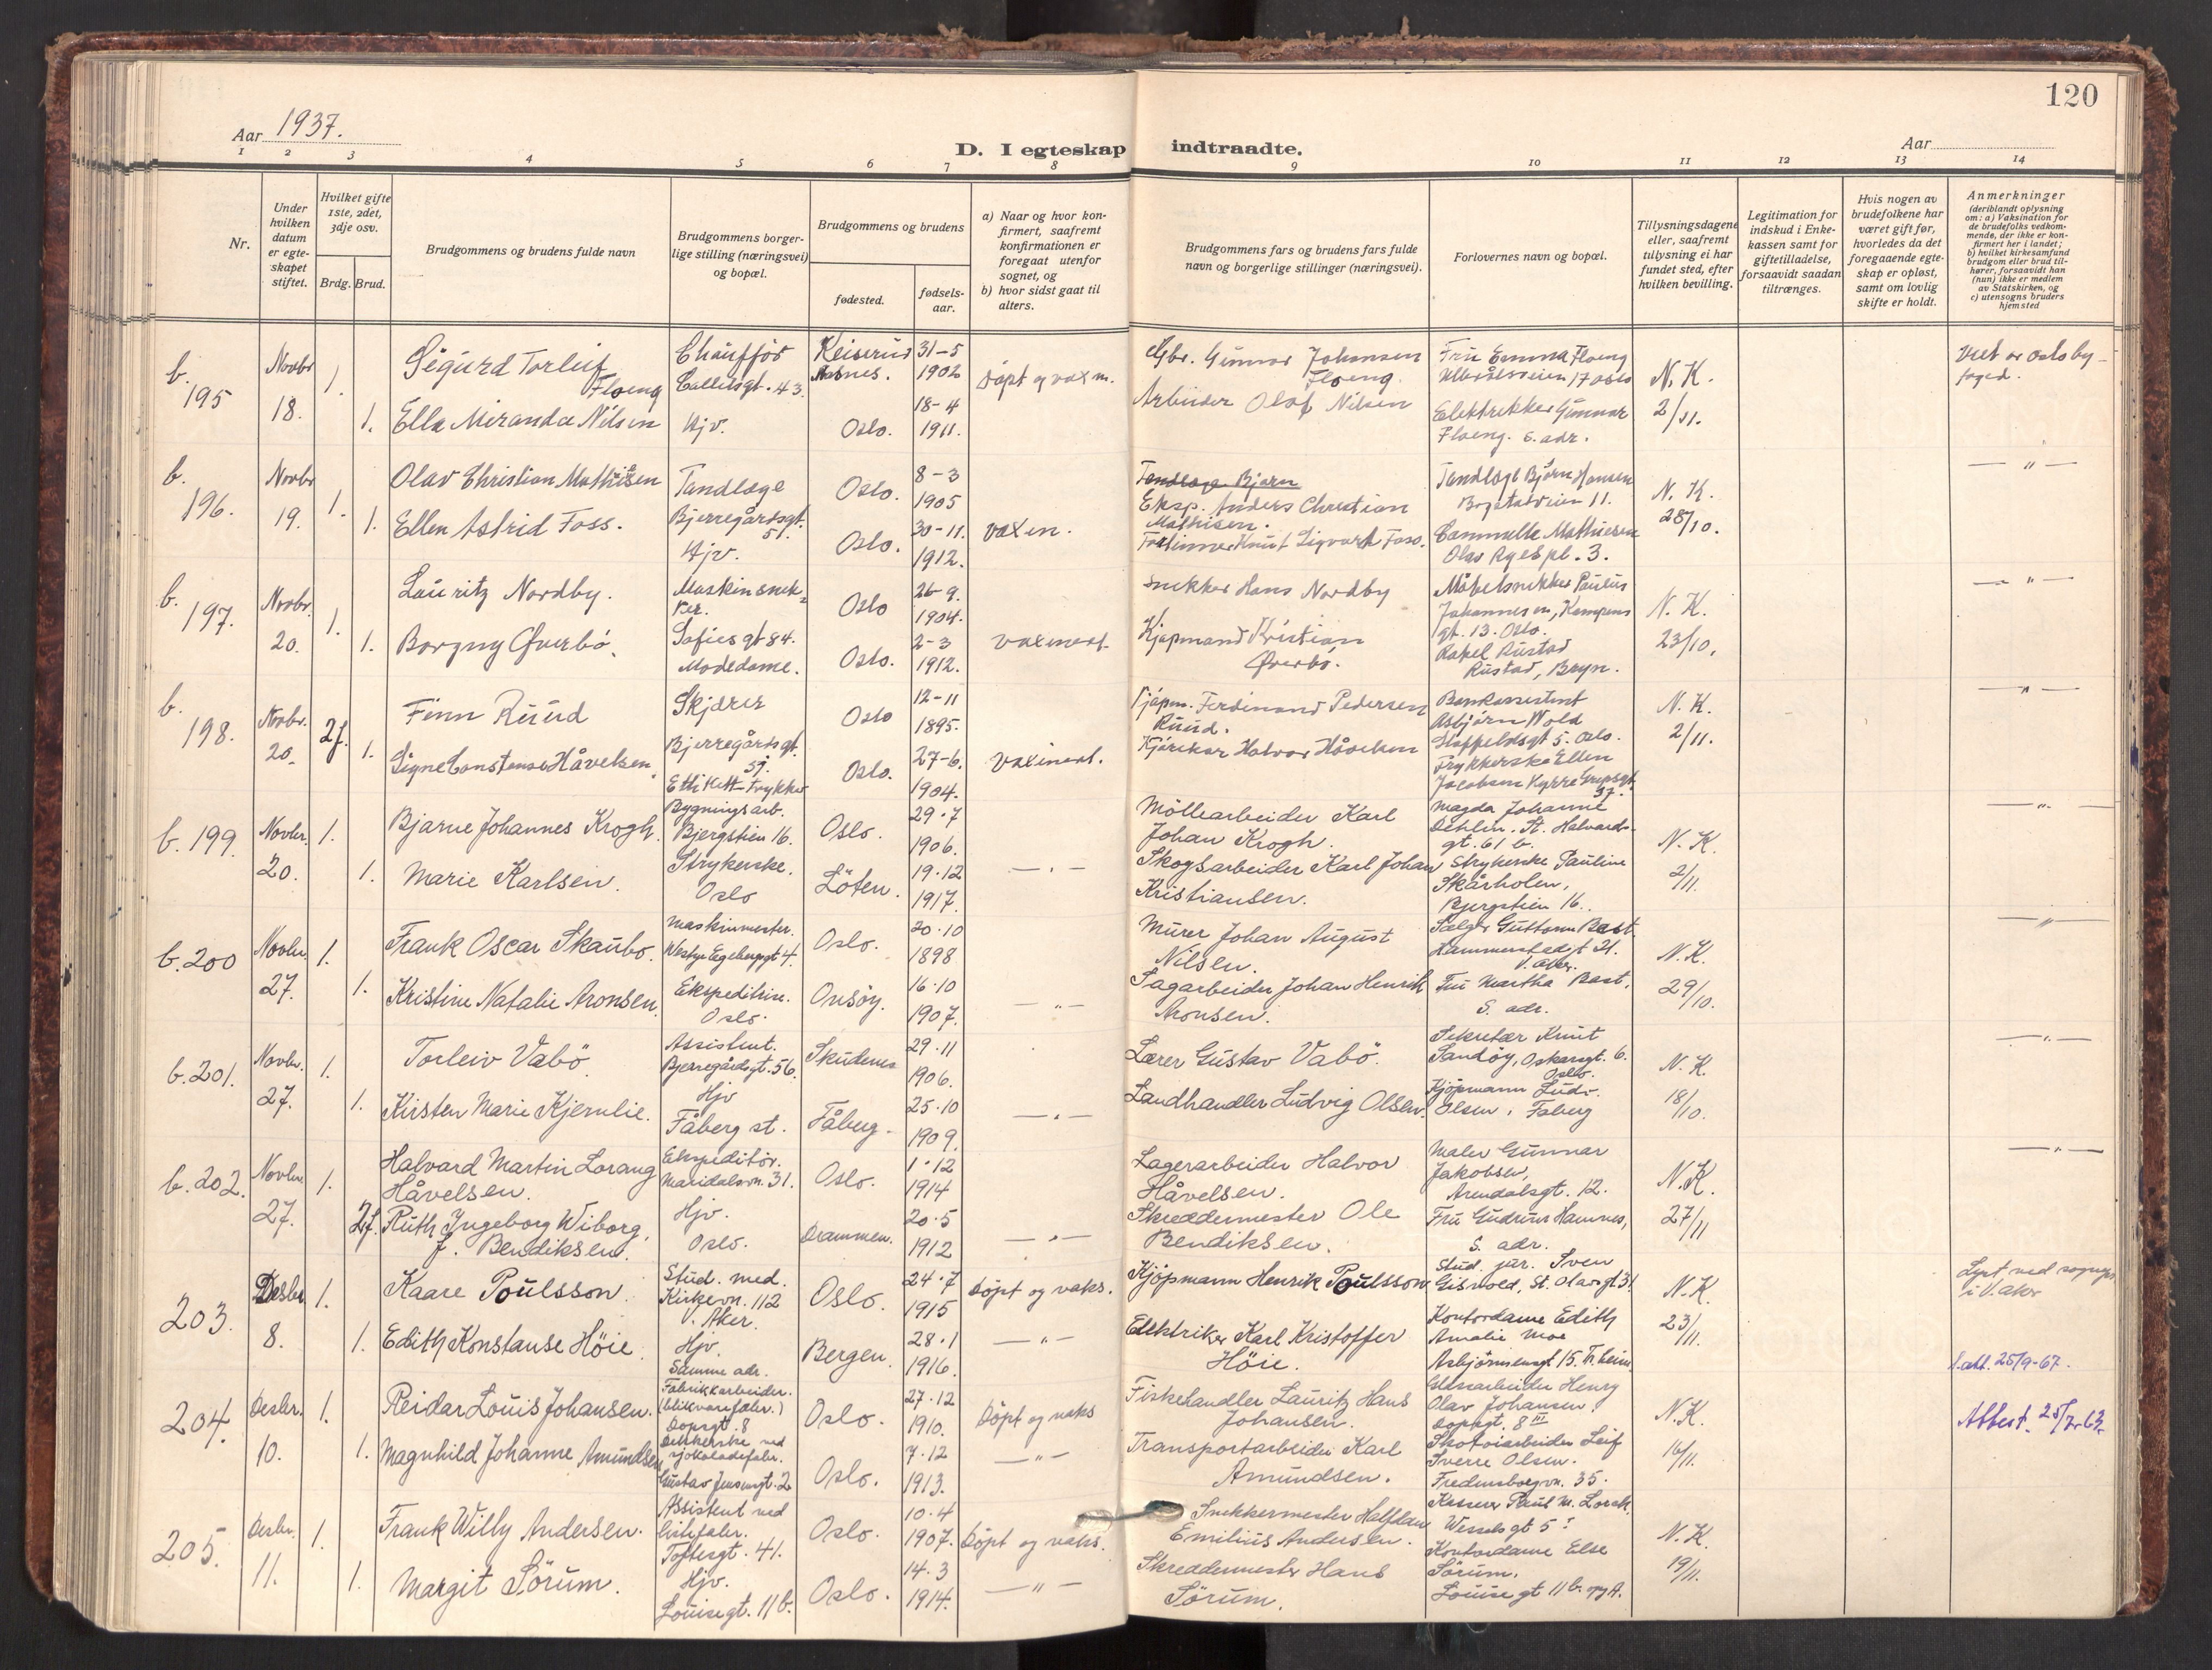 120
Aar 1937.
D. I egteskap indtraadte.
Aar
1 2 3 4 5 6 7 8 9 10 11 12 13 14
Nr.
Under hvilken datum er egteskapet stiftet.
Hvilket gifte 1ste, 2det, 3dje osv.
Brdg. Brud.
Brudgommens og brudens fulde navn
Brudgommens borgerlige stilling (næringsvei) og bopæl.
Brudgommens og brudens
fødested.
fødselsaar.
a) Naar og hvor konfirmert, saafremt konfirmationen er foregaat utenfor sognet, og
b) hvor sidst gaat til alters.
Brudgommens fars og brudens fars fulde navn og borgerlige stillinger (næringsvei).
Forlovernes navn og bopæl.
Tillysningsdagene eller, saafremt tillysning ei har fundet sted, efter hvilken bevilling.
Legitimation for indskud i Enkekassen samt for giftetilladelse, forsaavidt saadan tiltrænges.
Hvis nogen av brudefolkene har været gift før, hvorledes da det foregaaende egteskap er opløst, samt om lovlig skifte er holdt.
Anmerkninger
(deriblandt oplysning om: a) Vaksination for de brudefolks vedkommende, der ikke er konfirmert her i landet; b) hvilket kirkesamfund brudgom eller brud tilhører, forsaavidt han (hun) ikke er medlem av Statskirken, og c) utensogns bruders hjemsted
b. 195 Novbr 18. 1. Sigurd Torleif Floeng Chauffør Calletsgt. 43. Aasnes. 31-5 1902 døpt og vaxin.
1. Ella Miranda Nilsen Hjv. Oslo. 18-4 1911.
Gbr. Gunnar Johansen Floeng.
Arbeider Olaf Nilsen
Fru Emma Floeng Ullevålsveien 17 Oslo
Elektrikker Gunnar Floeng. s. adr.
N. K. 2/11.
Viet av Oslo byfoged.
b. 196. Novbr 19. 1. Olav Christian Mathisen Tandlæge Bjerregårdsgt. 51. Oslo. 8-3 1905
1. Ellen Astrid Foss. Hjv. Oslo. 30-11. 1912. vaxin.
Tandlæge Bjørn
Eksp. Anders Christian Mathisen.
Knut Sigvart Foss.
Tandlæge Bjørn Hansen Bogstadveien 11.
Mathiesen Olav Ryes pl. 3.
N. K. 28/10.
— " —
b. 197. Novbr. 20. 1. Lauritz Nordby. Maskinsnekker. Sofiesgt 84. Oslo 26-9. 1904.
1. Borgny Øverbø. Modedame. Oslo. 2-3 1912. vaxinert.
snekker Hans Nordby
Kjøpmand Kristian Øverbø.
Møbelsnekker Paulus Johannesen, Kampens gt. 13. Oslo.
Rakel Rustad Rustad, Bryn.
N. K. 23/10.
— " —
b. 198. Novbr. 20. 2f. Finn Ruud Skjærer Bjerregårdsgt. Oslo 12-11 1895.
1. Signe Constanse Håvelsen. Etikett-trykker Oslo. 27-6. 1904. vaxinert.
Kjøpm. Ferdinand Pedersen Ruud.
Kjørekar Halvor Håvelsen
Bankassistent Asbjørn Wold Stoffeldsgt 5. Oslo.
Trykkerske Ellen Jacobsen Kyrre Grepsgt. 37.
N. K. 2/11.
— " —
b. 199. Novbr. 20. 1. Bjarne Johannes Krogh. Bygningsarb. Bjergstien 16. Oslo. 29.7 1906.
1. Marie Karlsen. Strykerske. Oslo Löten. 19.12 1917. — " —
Möllearbeider Karl Johan Krogh.
Skogsarbeider Karl Johan Kristiansen.
Magda Johanne Dehlin. St. Halvardsgt. 61 b.
Strykerske Pauline Skårholen, Bjergstien 16.
N. K. 2/11.
— " —
b. 200 Novbr. 27. 1. Frank Oscar Skaubo. Maskinmester. Westye Egebergsgt 4. Oslo. 20.10 1898
1. Kristine Natalie Aronsen. Ekspeditrise. Oslo. Onsøy. 16.10 1907. — " —
Murer Johan August Nilsen.
Sagarbeider Johan Henrik Aronsen.
Sælger Guttorm Bast. Hammerstadgt 21. V. Aker.
Fru Martha Bast. S. adr.
N. K. 29/10.
— " —
b. 201. Novbr. 27. 1. Torleiv Vabö Assistent. Bjerregårdsgt. 56. Skudenes 29.11 1906.
1. Kirsten Marie Kjernlie. Hjv Fåberg st. Fåberg. 25.10 1909. — " —
Lærer Gustav Vabö.
Landhandler Ludvig Olsen.
Sekretær Knut Sandöy, Oskarsgt. 6. Oslo.
Kjöpmann Ludv. Olsen, Faberg
N. K. 18/10.
— " —
b. 202. Novbr. 27. 1. Halvard Martin Lorang Håvelsen. Ekspeditör. Maridalsvn. 31. Oslo. 1.12 1914
2f. Ruth Ingeborg Wiborg, f. Bendiksen. Hjv. Oslo. Drammen. 20.5 1912 — " —
Lagerarbeider Halvor Håvelsen.
Skreddermester Ole Bendiksen.
Maler Gunnar Jakobsen, Arendalsgt. 12.
Fru Gudrun Hamnes, S. adr.
N.K. 27/11
— " —
203. Desbr 8. 1. Kaare Poulsson. Stud. med. Kirkevn. 112 V. Aker. Oslo. 24.7 1915 Döpt og vaks.
1. Edith Konstanse Höie. Hjv. Samme adr. Bergen. 28.1 1916. — " —
Kjöpmann Henrik Poulsson
Elektriker Karl Kristoffer Höie.
Stud. jur. Sven Gisvold, St. Olavsgt 31
Kontordame Edith Amalie Moe Asbjörnsensgt. 15. Tr.heim
N.K. 23/11.
Lyst ved sogn i V. Aker
25/9-67.
204. Desbr. 10. 1. Reidar Louis Johansen. Fabrikkarbeider. (blikvarefabr.) Dopsgt. 8 Oslo. 27.12 1910. Döpt og vaks
1. Magnhild Johanne Amundsen ved sjokoladefabr. Gustav Jensensgt. 2 Oslo. 7.12 1913. — " —
Fiskehandler Lauritz Hans Johansen.
Transportarbeider Karl Amundsen.
Henry Olav Johansen, Dopsgt. 8 III
Skotöiarbeider Leif Sverre Olsen. Fredensborgvn. 35.
N.K. 16/11.
Attest. 25/7-63.
205. Desbr. 11. 1. Frank Willy Andersen. Assistent ved Toftesgt. 41. Oslo. 10.4 1907. Döpt og vaks.
1. Margit Sörum. Hjv. Louisegt. 11 b. Oslo. 14.3 1914. — " —
Snekkermester Halfdan Emilius Andersen.
Skreddermester Hans Sörum.
Kasserer Paul M. Lorck. Wesselsgt 5 I
Kontordame Else Sörum. Louisegt 11 b.
N.K. 19/11.